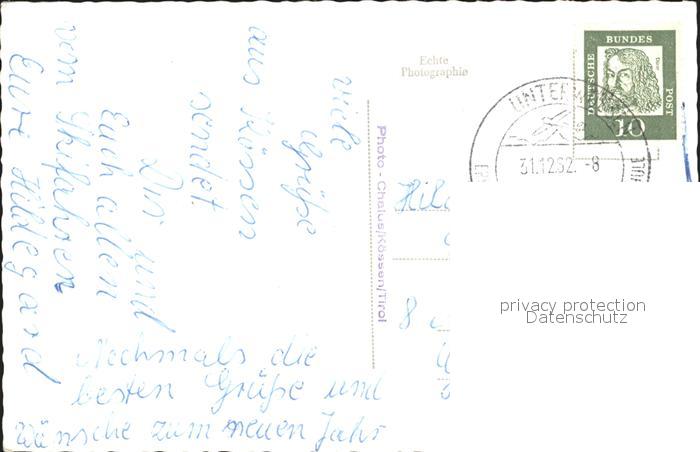 viele
Grüße
aus Kössen
sendet
Dir und
Euch allen
vom Skifahren
Eure Hildegard
Nochmals die
besten Grüße und
wünsche zum neuen Jahr
Echte
Photographie
Photo - Chalus/Kössen/Tirol
DEUTSCHE
BUNDES
POST
Dürer
10
UNTERW
31.12.62.-8
8
privacy protection
Datenschutz